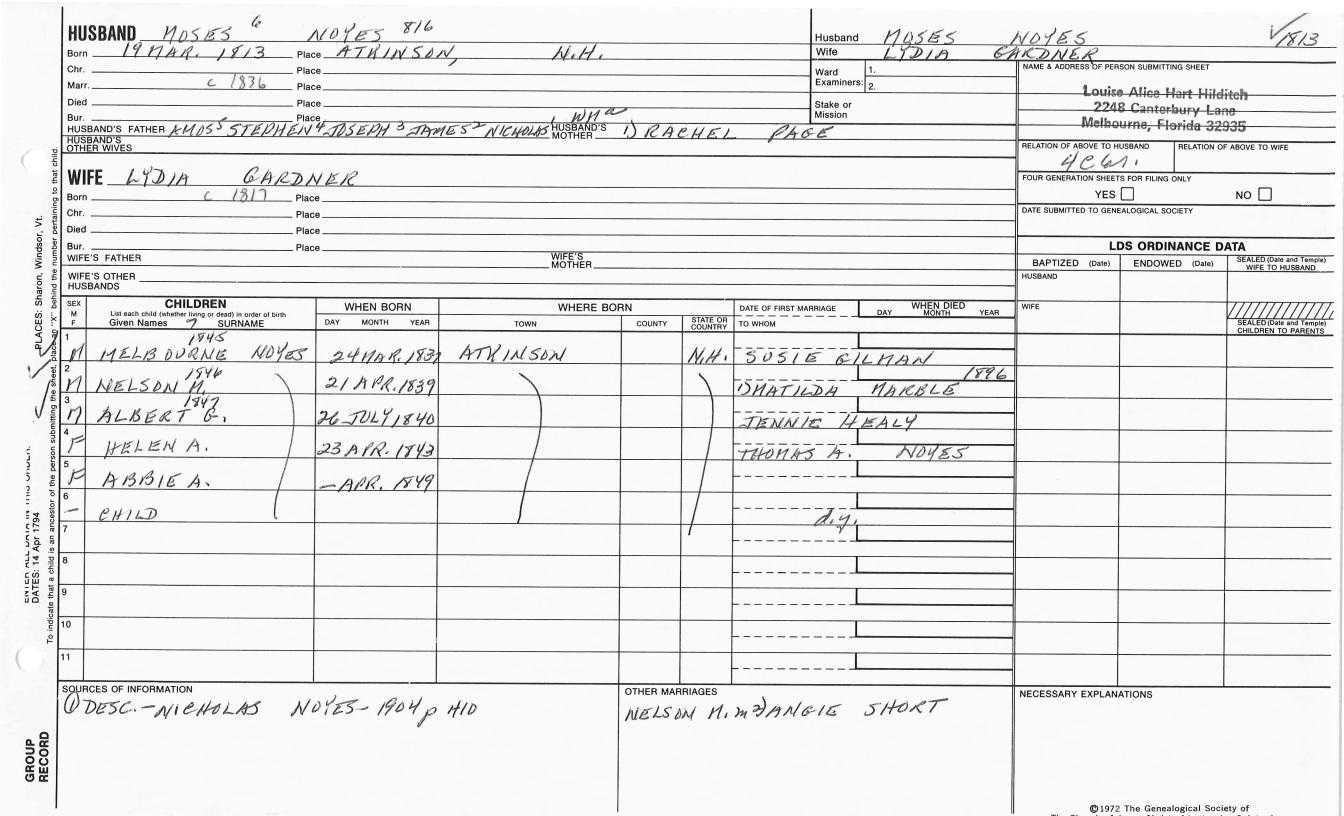 HUSBAND MOSES 6 NOYES 816
Born 19 MAR. 1813 Place ATKINSON, N.H.
Chr. Place
Marr. c 1836 Place
Died Place
Bur. Place
HUSBAND'S FATHER AMOS5 STEPHEN4 JOSEPH3 JAMES2 NICHOLAS1 WMa HUSBAND'S MOTHER 1) RACHEL PAGE
HUSBAND'S OTHER WIVES
WIFE LYDIA GARDNER
Born c 1817 Place
Chr. Place
Died Place
Bur. Place
WIFE'S FATHER WIFE'S MOTHER
WIFE'S OTHER HUSBANDS
Husband MOSES NOYES √1813
Wife LYDIA GARDNER
Ward Examiners: 1.
2.
Stake or Mission
NAME & ADDRESS OF PERSON SUBMITTING SHEET
Louise Alice Hart Hilditch
2248 Canterbury Lane
Melbourne, Florida 32935
RELATION OF ABOVE TO HUSBAND RELATION OF ABOVE TO WIFE
FOUR GENERATION SHEETS FOR FILING ONLY
YES NO
DATE SUBMITTED TO GENEALOGICAL SOCIETY
LDS ORDINANCE DATA
BAPTIZED (Date) ENDOWED (Date) SEALED (Date and Temple) WIFE TO HUSBAND
HUSBAND
WIFE
SEALED (Date and Temple) CHILDREN TO PARENTS
SEX M F CHILDREN WHEN BORN WHERE BORN DATE OF FIRST MARRIAGE WHEN DIED
List each child (whether living or dead) in order of birth
Given Names 7 SURNAME DAY MONTH YEAR TOWN COUNTY STATE OR COUNTRY TO WHOM DAY MONTH YEAR
1 1845
M MELBOURNE NOYES 24 MAR. 1837 ATKINSON N.H. SUSIE GILMAN
2 1846 1896
M NELSON M. 21 APR. 1839 1) MATILDA MARBLE
3 1847
M ALBERT G. 26 JULY 1840 JENNIE HEALY
4
F HELEN A. 23 APR. 1843 THOMAS A. NOYES
5
F ABBIE A. – APR. 1849
6
– CHILD d.y.
7
8
9
10
11
SOURCES OF INFORMATION
① DESC.-NICHOLAS NOYES-1904 p 410
OTHER MARRIAGES
NELSON M. m 2) ANGIE SHORT
NECESSARY EXPLANATIONS
©1972 The Genealogical Society of
PLACES: Sharon, Windsor, Vt.
DATES: 14 Apr 1794
To indicate that a child is an ancestor of the person submitting the sheet, place an "X" behind the number pertaining to that child.
GROUP RECORD